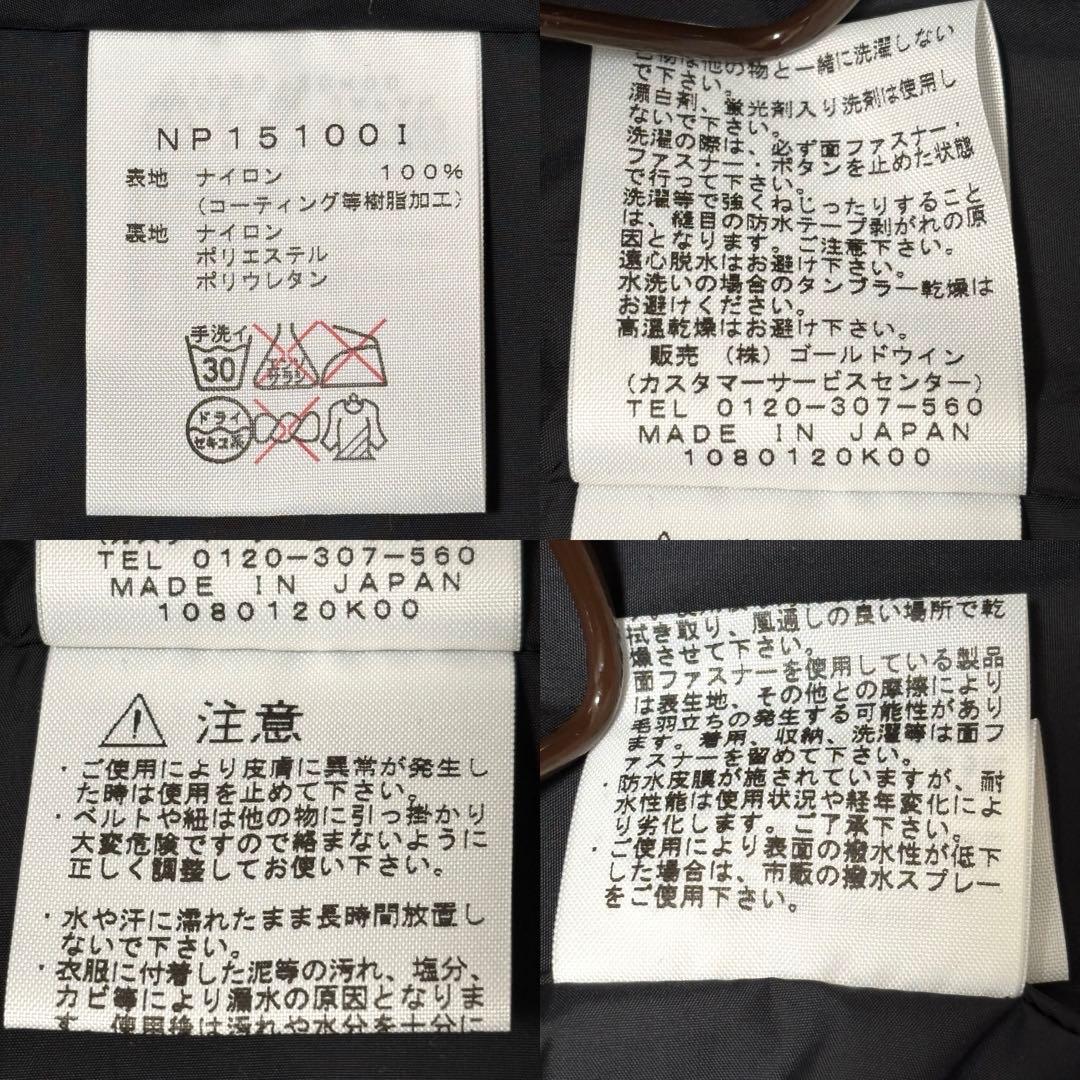 NP15100I
表地 ナイロン 100%
(コーティング等樹脂加工)
裏地 ナイロン
ポリエステル
ポリウレタン
手洗イ
30
エンソ
サラシ
ドライ
セキユ系
は他の物と一緒に洗濯しない
で下さい。
漂白剤、蛍光剤入り洗剤は使用し
ないで下さい。
洗濯の際は、必ず面ファスナー・
ファスナー・ボタンを止めた状態
で行って下さい。
洗濯等で強くねじったりすること
は、縫目の防水テープ剥がれの原
因となります。ご注意下さい。
遠心脱水はお避け下さい。
水洗いの場合のタンブラー乾燥は
お避けください。
高温乾燥はお避け下さい。
販売 (株)ゴールドウイン
(カスタマーサービスセンター)
TEL 0120-307-560
MADE IN JAPAN
1080120K00
TEL 0120-307-560
MADE IN JAPAN
1080120K00
注意
・ご使用により皮膚に異常が発生し
た時は使用を止めて下さい。
・ベルトや紐は他の物に引っ掛かり
大変危険ですので絡まないように
正しく調整してお使い下さい。
・水や汗に濡れたまま長時間放置し
ないで下さい。
・衣服に付着した泥等の汚れ、塩分、
カビ等により漏水の原因となりま
す。使用後は汚れや水分を十分に
拭き取り、風通しの良い場所で乾
燥させて下さい。
面ファスナーを使用している製品
は表生地、その他との摩擦により
毛羽立ちの発生する可能性があり
ます。着用、収納、洗濯等は面フ
ァスナーを留めて下さい。
・防水皮膜が施されていますが、耐
水性能は使用状況や経年変化によ
り劣化します。ご了承下さい。
・ご使用により表面の撥水性が低下
した場合は、市販の撥水スプレー
をご使用下さい。